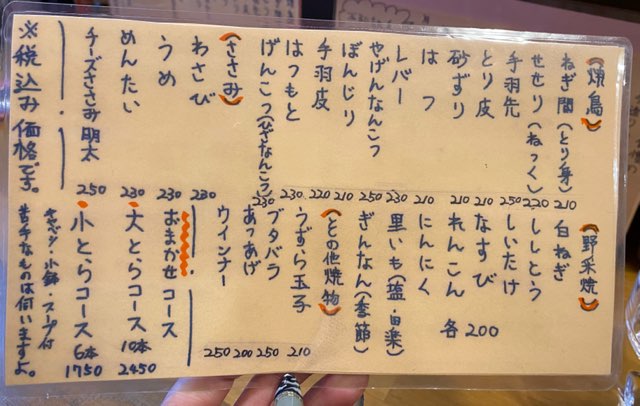 (焼鳥)
ねぎ間(とり身) 210
せせり(ねっく) 220
手羽先 250
とり皮 210
砂ずり 210
はつ 210
レバー 230
やげんなんこつ 250
ぼんじり 210
手羽皮 220
はつもと 230
げんこつ(ひざなんこつ) 230
(ささみ)
わさび 230
うめ 230
めんたい 230
チーズささみ明太 250
※税込み価格です。
(野菜焼)
白ねぎ
ししとう
しいたけ
なすび
れんこん
にんにく
里いも(塩・田楽)
ぎんなん(季節)
各200
(その他焼物)
うずら玉子 210
ブタバラ 250
あつあげ 200
ウインナー 250
おまかせコース
大とらコース 10本 2450
小とらコース 6本 1750
キャベツ・小鉢・スープ付
苦手なものは伺いますよ。